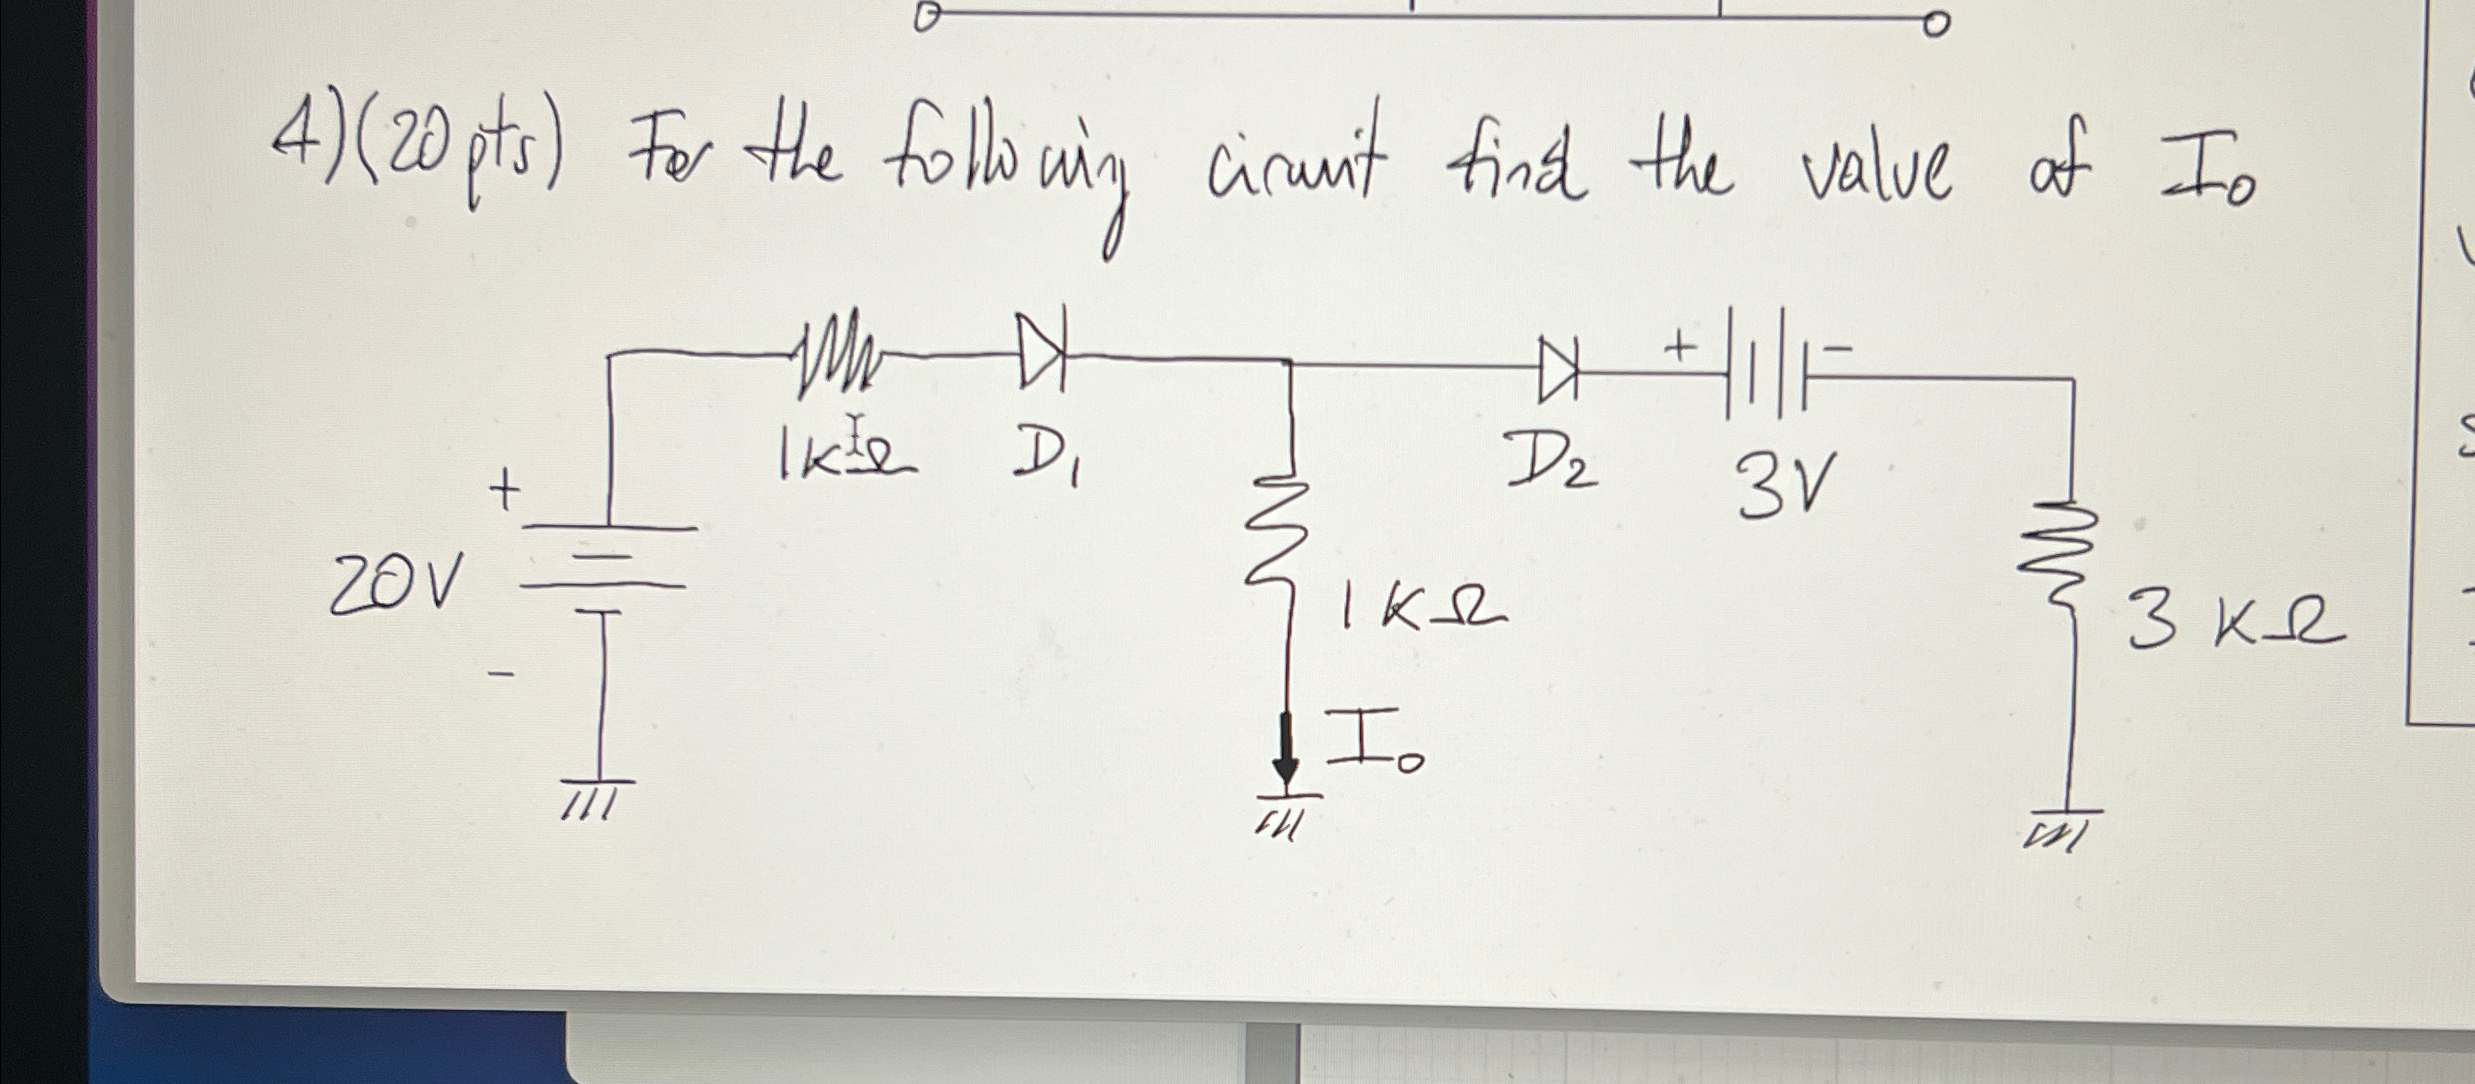 4) (20 pts) For the following circuit find the value of Io
1KΩ D1 D2 + -
3V
+
20V
-
1KΩ
3KΩ
Io